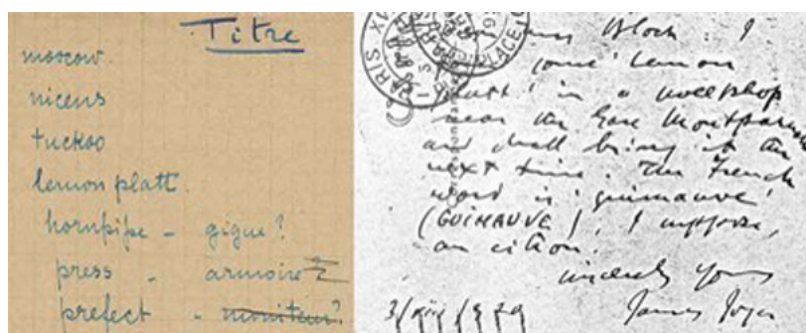 Titre
moocow
nicens
tuckoo
lemon platt
hornpipe - gigue?
press - armoire
prefect - moniteur?
PARIS XV
PLACE
Bloch: I
some 'lemon
platt' in a sweetshop
near the Gare Montparnasse
and shall bring it the
next time. The French
word is 'guimauve'
(GUIMAUVE), I suppose,
au citron.
sincerely yours
James Joyce